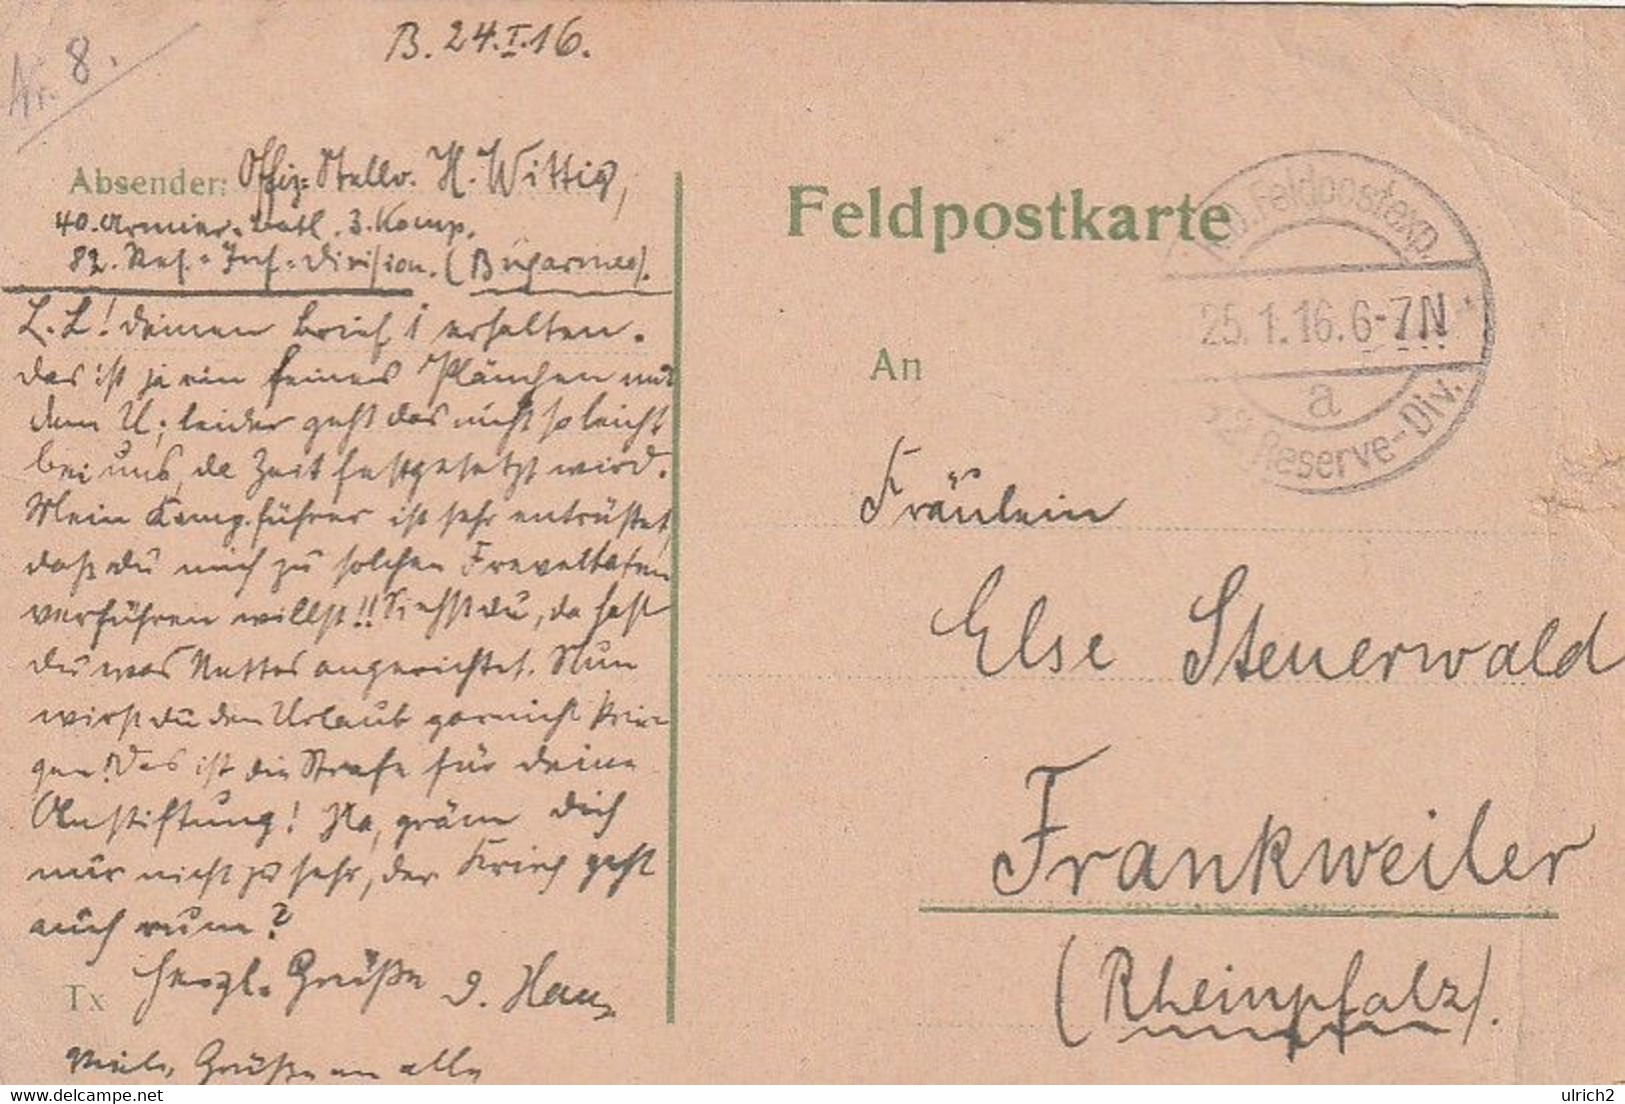 Nr. 8.
B. 24.I.16.
Absender: Offiz.-Stellv. H. Wittig,
40. Armier.-Batl. 3. Komp.
82. Res.-Inf.-Division. (Bugarmee).
L. L! Deinen Brief 1 erhalten.
Das ist ja ein feines Plänchen mit
dem U; leider geht das nicht so leicht
bei uns, da Zeit festgesetzt wird.
Mein Komp.führer ist sehr entrüstet,
daß du mich zu solchen Freveltaten
verführen willst!! Siehst du, da hast
du was Nettes angerichtet. Nun
wirst du den Urlaub garnicht krie-
gen! Das ist die Strafe für deine
Anstiftung! Na, gräm dich
nur nicht zu sehr, der Krieg geht
auch rum?
Tx Herzl. Grüße d. Hans
Viele Grüße an alle
Feldpostkarte
An
Fräulein
Else Steuerwald
Frankweiler
(Rheinpfalz).
Feldpostexp.
25.1.16.6-7N
a
Reserve-Div.
ulrich2